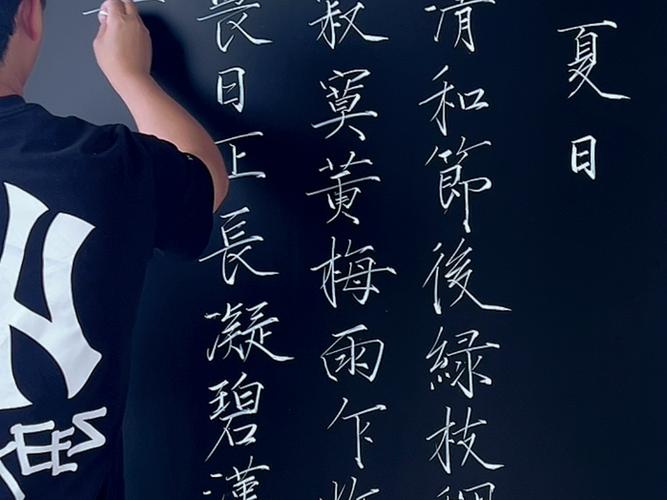 夏日
清和節後綠枝稠
寂寞黃梅雨乍
畏日正長凝碧漢
KEES